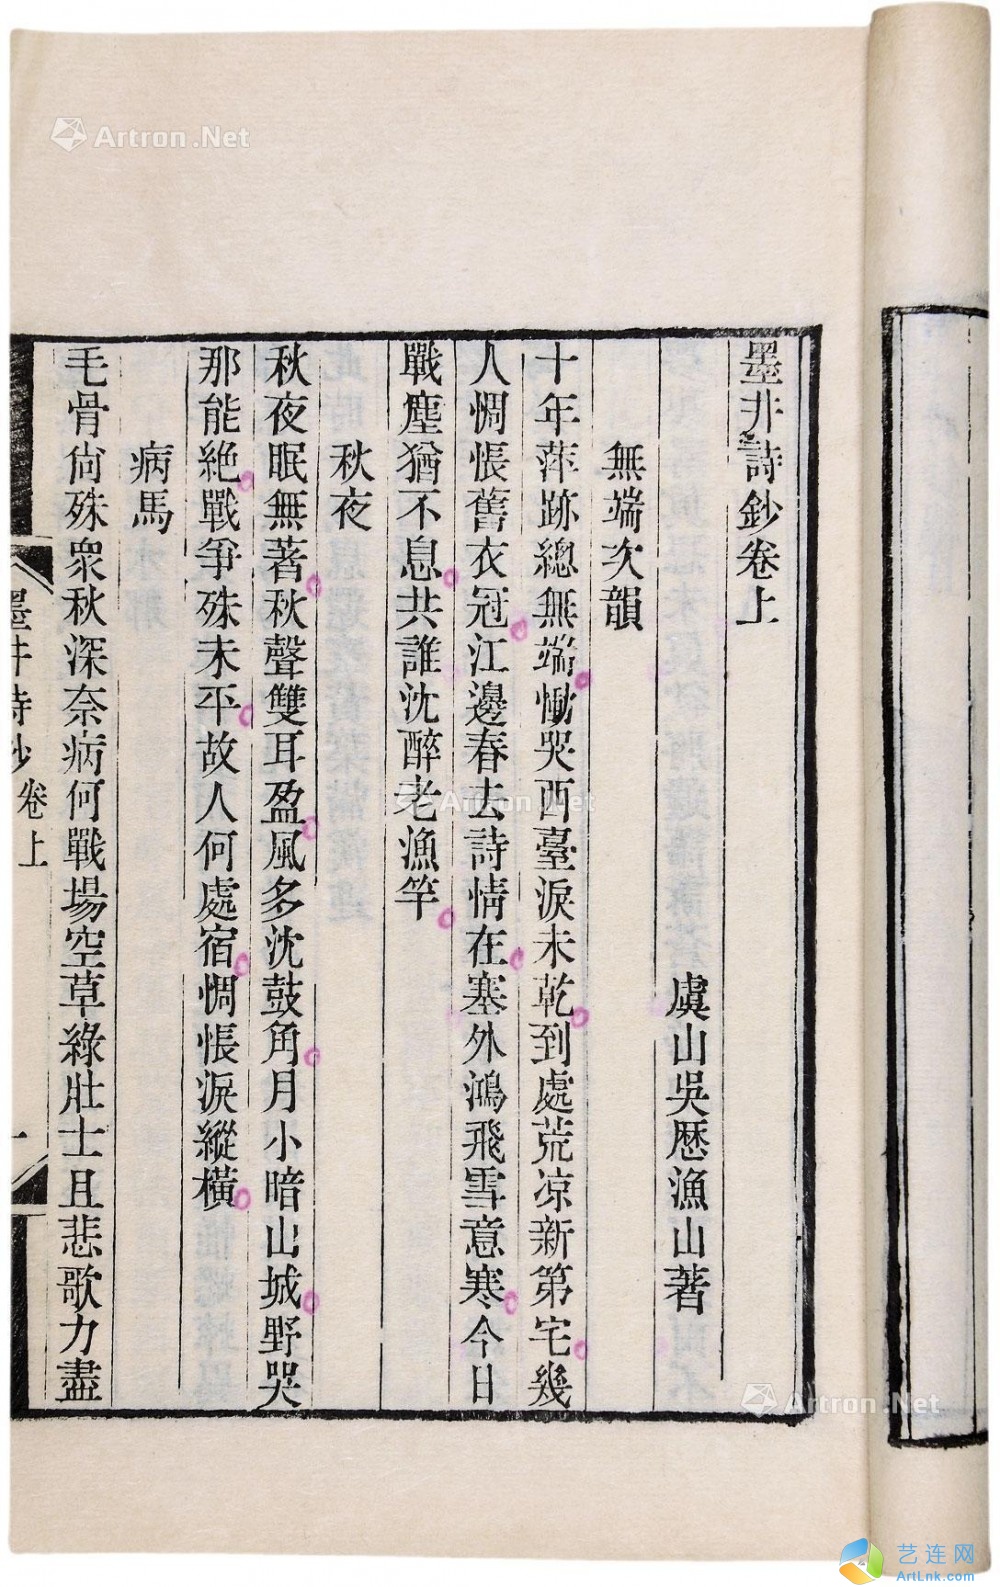 墨井詩鈔卷上
虞山吳歷漁山著
無端次韻
十年萍跡總無端慟哭西臺淚未乾到處荒凉新第宅幾
人惆悵舊衣冠江邊春去詩情在塞外鴻飛雪意寒今日
戰塵猶不息共誰沈醉老漁竿
秋夜
秋夜眠無著秋聲雙耳盈風多沈鼓角月小暗山城野哭
那能絕戰爭殊未平故人何處宿惆悵淚縱橫
病馬
毛骨尙殊衆秋深奈病何戰場空草綠壯士且悲歌力盡
墨井詩鈔卷上
一
Artron.Net
Artron.Net
Artron.Net
艺连网
ArtLnk.com